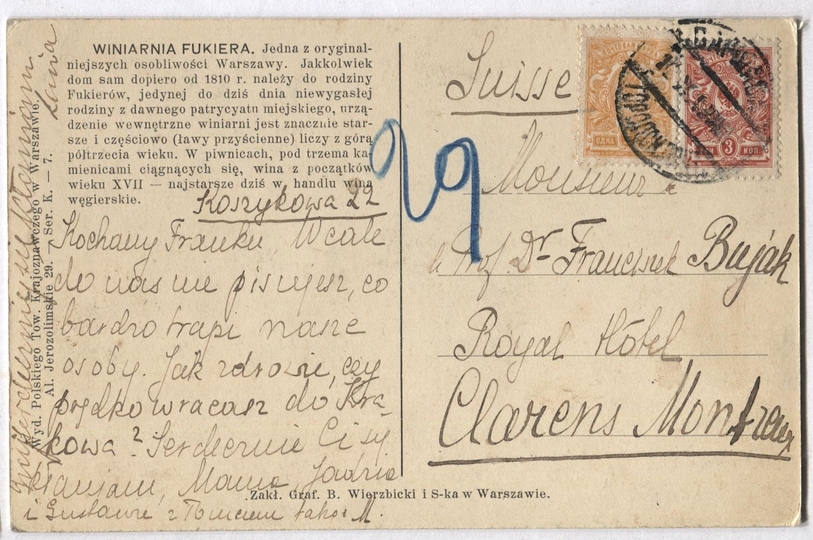 WINIARNIA FUKIERA. Jedna z oryginal-
niejszych osobliwości Warszawy. Jakkolwiek
dom sam dopiero od 1810 r. należy do rodziny
Fukierów, jedynej do dziś dnia niewygasłej
rodziny z dawnego patrycyatu miejskiego, urzą-
dzenie wewnętrzne winiarni jest znacznie star-
sze i częściowo (ławy przyścienne) liczy z górą
półtrzecia wieku. W piwnicach, pod trzema ka-
mienicami ciągnących się, wina z początków
wieku XVII — najstarsze dziś w handlu wina
węgierskie.
Koszykowa 22
Kochany Franku Wcale
do nas nie piszesz, co
bardzo trapi nasze
osoby. Jak zdrowie, czy
prędko wracasz do Kra-
kowa? Serdecznie Ci się
kłaniam, Mama, Jadzia
i Gustawa z także M.
Wyd. Polskiego Tow. Krajoznawczego w Warszawie.
Al. Jerozolimskie 29. — Ser. K. — 7.
Zakł. Graf. B. Wierzbicki i S-ka w Warszawie.
29
ОДНА
3 КОП.
Suisse
Monsieur
Prof. Dr Franciszek Bujak
Royal Hôtel
Clarens Montreux